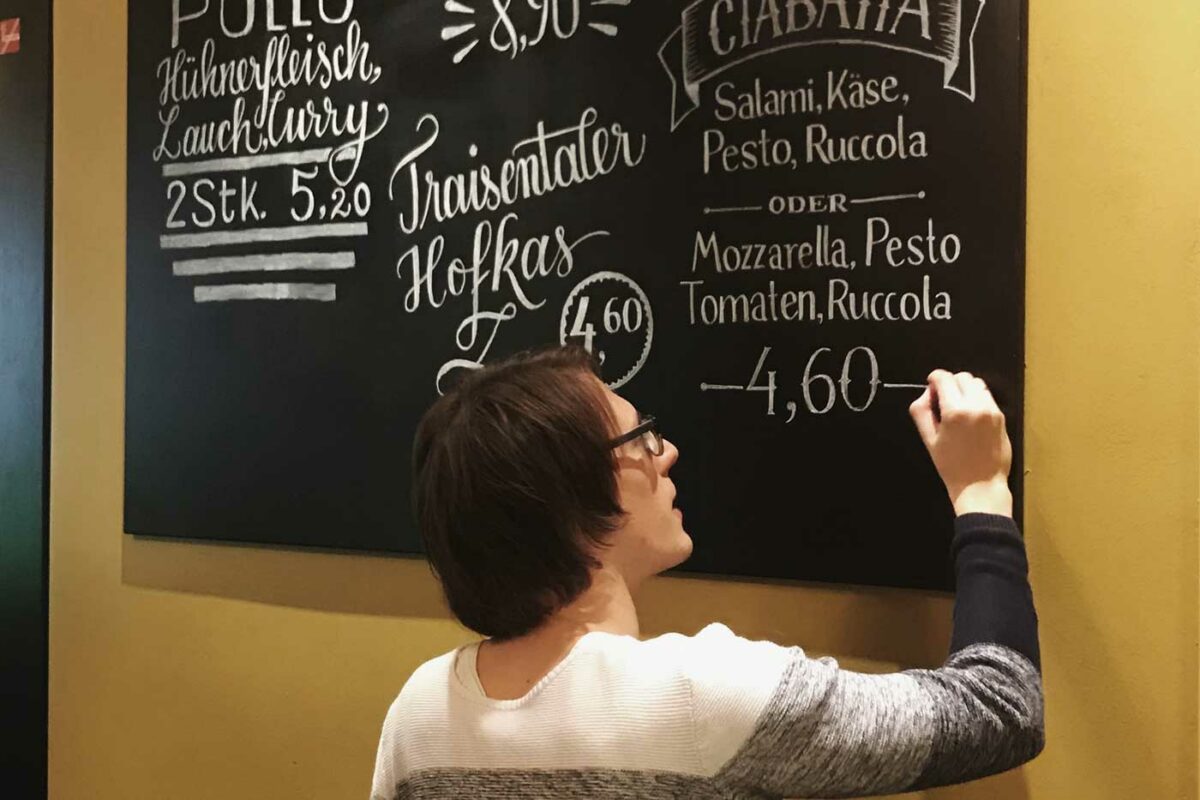 POLLO
Hühnerfleisch,
Lauch, Curry
2Stk. 5,20
8,90
Traisentaler
Hofkas
4,60
CIABATTA
Salami, Käse,
Pesto, Ruccola
ODER
Mozzarella, Pesto
Tomaten, Ruccola
-4,60-